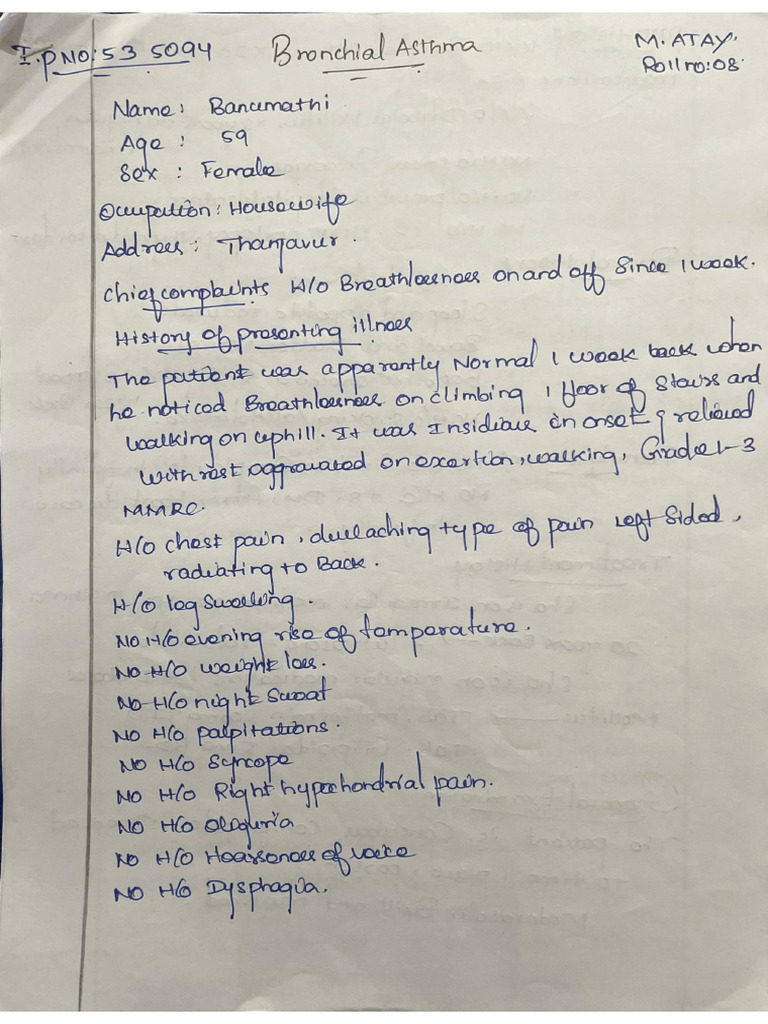 I.P NO: 53 5094
Bronchial Asthma
M. ATAY.
Roll no: 08.
Name: Banumathi
Age : 59
Sex : Female
Occupation: Housewife
Address: Thanjavur.
Chief complaints H/O Breathlessness on and off Since 1 week.
History of presenting illness
The patient was apparently Normal 1 week back when
he noticed Breathlessness on climbing 1 floor of Stairs and
walking on uphill. It was Insidious in onset & relieved
with rest aggravated on exertion, walking, Grade 1-3
MMRC.
H/O chest pain, dull aching type of pain left sided,
radiating to Back.
H/O leg swelling.
NO H/O evening rise of temperature.
NO H/O weight loss.
NO H/O night sweat
NO H/O palpitations.
NO H/O Syncope
NO H/O Right hypochondrial pain.
NO H/O ologuria
NO H/O Hoarsenoss of voice
NO H/O Dysphagia.